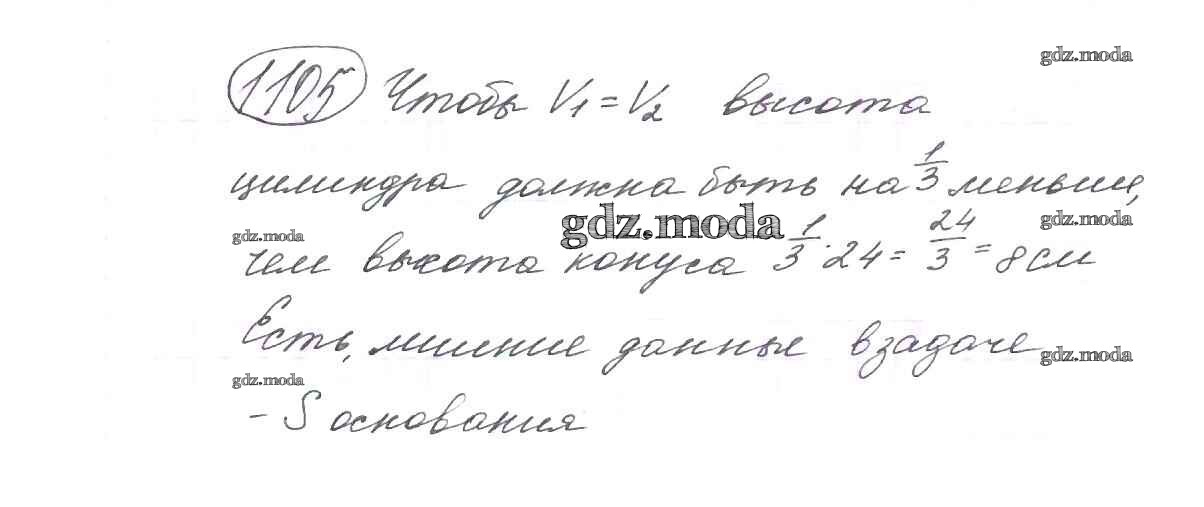 gdz.moda
1105 Чтобы V₁ = V₂ высота
цилиндра должна быть на 1/3 меньш,
gdz.moda gdz.moda gdz.moda
чем высота конуса 1/3 · 24 = 24/3 = 8 см
Есть, лишние данные в задаче
gdz.moda gdz.moda
– S основания